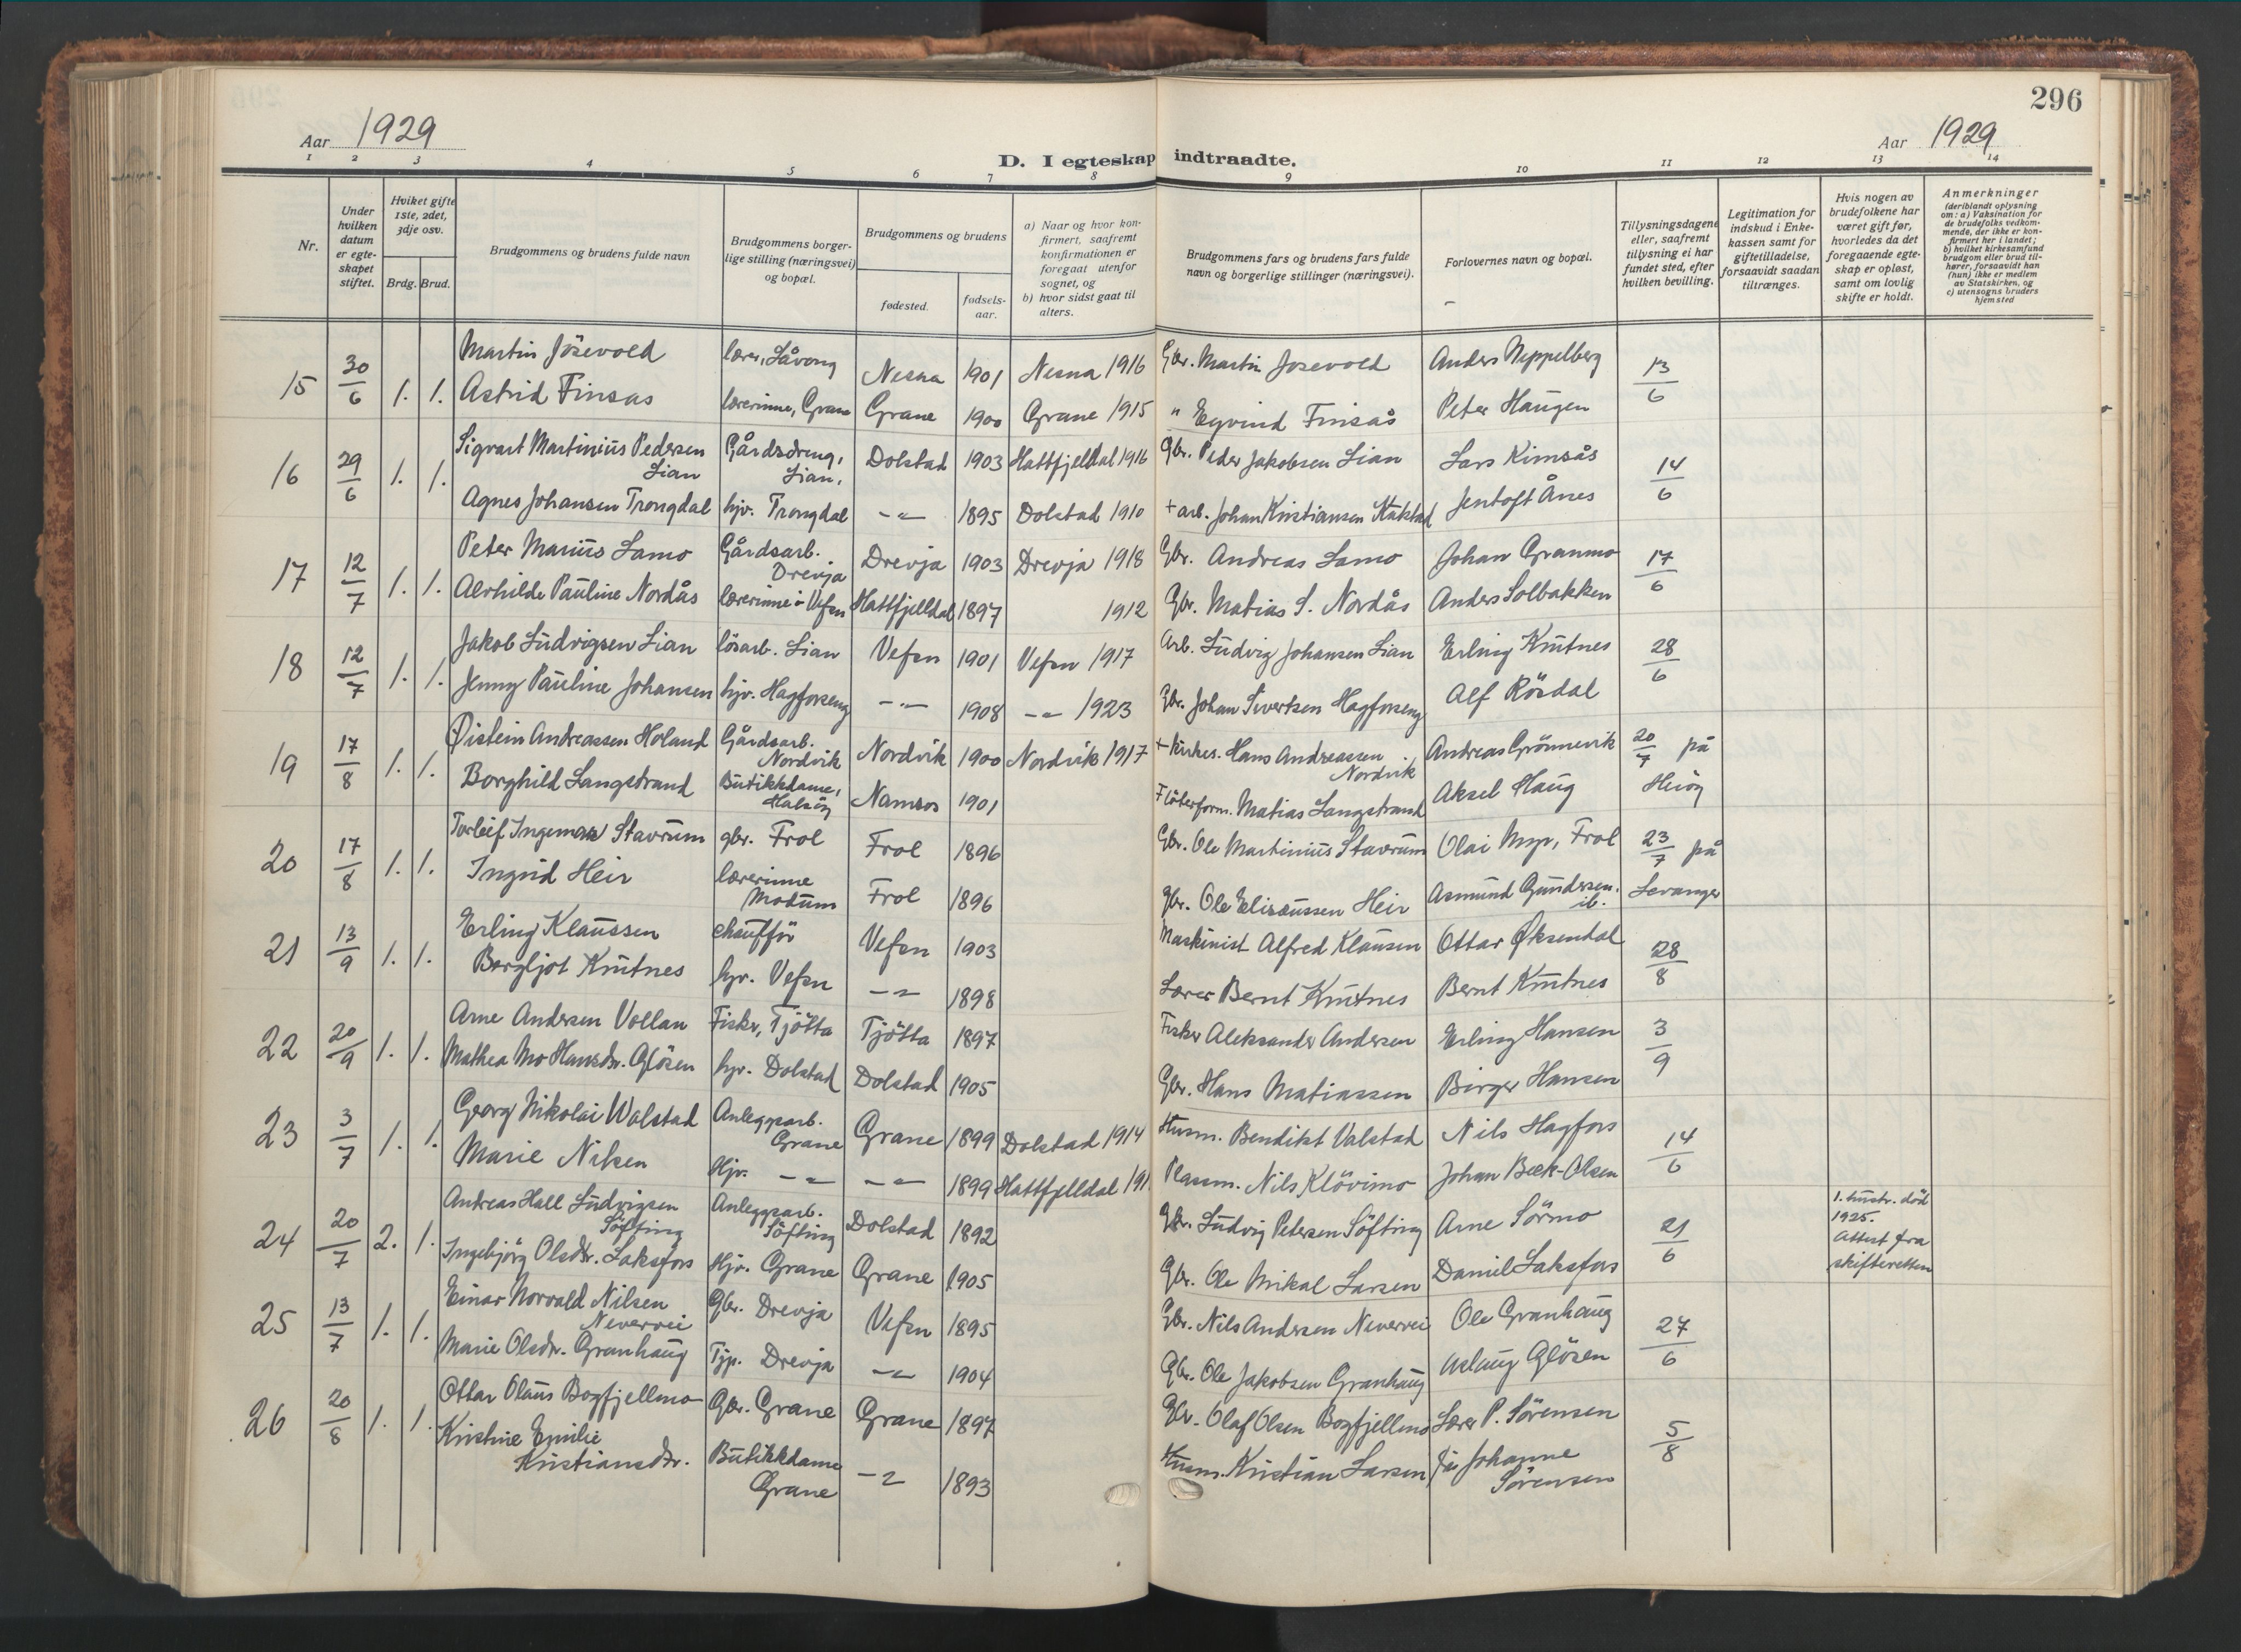 296
Aar 1929
Aar 1929
D. I egteskap indtraadte.
1 2 3 4 5 6 7 8 9 10 11 12 13 14
Nr.
Under hvilken datum er egteskapet stiftet.
Hviket gifte 1ste, 2det, 3dje osv.
Brdg. Brud.
Brudgommens og brudens fulde navn
Brudgommens borgerlige stilling (næringsvei) og bopæl.
Brudgommens og brudens
fødested.
fødselsaar.
a) Naar og hvor konfirmert, saafremt konfirmationen er foregaat utenfor sognet, og
b) hvor sidst gaat til alters.
Brudgommens fars og brudens fars fulde navn og borgerlige stillinger (næringsvei).
Forlovernes navn og bopæl.
Tillysningsdagene eller, saafremt tillysning ei har fundet sted, efter hvilken bevilling.
Legitimation for indskud i Enkekassen samt for giftetilladelse, forsaavidt saadan tiltrænges.
Hvis nogen av brudefolkene har været gift før, hvorledes da det foregaaende egteskap er opløst, samt om lovlig skifte er holdt.
Anmerkninger (deriblandt oplysning om: a) Vaksination for de brudefolks vedkommende, der ikke er konfirmert her i landet; b) hvilket kirkesamfund brudgom eller brud tilhører, forsaavidt han (hun) ikke er medlem av Statskirken, og c) utensogns bruders hjemsted
15 30/6 1. 1. Martin Jösevold lærer, Låvong Nesna 1901 Nesna 1916 Gbr. Martin Josevold Anders Neppelberg 13/6
Astrid Finsas lærerinne, Grane Grane 1900 Grane 1915 " Eyvind Finsås Peter Haugen
16 29/6 1. 1. Sigvart Martinius Pedersen Lian Gårdsdreng, Lian, Dolstad 1903 Hattfjelldal 1916 Gbr. Peder Jakobsen Lian Lars Kimsås 14/6
Agnes Johansen Trongdal hjv. Trongdal -"- 1895 Dolstad 1910 + arb. Johan Kristiansen Jentoft Ånes
17 12/7 1. 1. Peter Marius Lamo Gårdsarb. Drevja Drevja 1903 Drevja 1918 Gbr. Andreas Lamo Johan Granmo 17/6
Alvhilde Pauline Nordås lærerinne i Vefsn Hattfjelldal 1897 1912 Gbr. Matias S. Nordås Anders Solbakken
18 12/7 1. 1. Jakob Ludvigsen Lian lösarb. Lian Vefsn 1901 Vefsn 1917 Arb. Ludvig Johansen Lian Erling Knutnes 28/6
Jenny Pauline Johansen hjv. Hagforseng -"- 1908 -"- 1923 Gbr. Johan Sivertsen Hagforseng Alf Rösdal
19 17/8 1. 1. Øistein Andreassen Holand Gårdsarb. Nordvik Nordvik 1900 Nordvik 1917 + kirkes. Hans Andreassen Nordvik Andreas Grönnevik 20/7 på
Borghild Langstrand Butikkdame, Halsöy Namsos 1901 Flöterform. Matias Langstrand Aksel Haug
20 17/8 1. 1. Torleif Ingemar Stavrum gbr. Frol Frol 1896 Gbr. Ole Martinius Stavrum Olai Myr, Frol 23/7 på Levanger
Ingrid Heir lærerinne Modum Frol 1896 gbr. Ole Elisæussen Heir Asmund Gundersen. ib.
21 13/9 1. 1. Erling Klaussen chaufför Vefsn 1903 Maskinist Alfred Klausen Ottar Øksendal 28/8
Borgljot Knutnes hjv. Vefsn -"- 1898 Lærer Bernt Knutnes Bernt Knutnes
22 20/9 1. 1. Arne Andersen Vollan Fisker, Tjötta Tjötta 1897 Fisker Aleksander Andersen Erling Hansen 3/9
Mathea Mo Hansdr. Glösen hjv. Dolstad Dolstad 1905 Gbr. Hans Matiassen Birger Hansen
23 3/7 1. 1. Georg Nikolai Walstad Anleggsarb. Grane Grane 1899 Dolstad 1914 Husm. Bendikt Valstad Nils Hagfors 14/6
Marie Nilsen Hjv. -"- -"- 1899 Hattfjelldal 191 Plassm. Nils Klövimo Johan Beck-Olsen
24 20/7 2. 1. Andreas Hall Ludvigsen Söfting Anleggsarb. Söfting Dolstad 1892 Gbr. Ludvig Petersen Söfting Arne Sörmo 21/6 1. hustr. död 1925. Attest fra skifteretten
Ingebjörg Olsdtr. Laksfors Hjv. Grane Grane 1905 Gbr. Ole Mikal Larsen Daniel Laksfors
25 13/7 1. 1. Einar Norvald Nilsen Nevervei Gbr. Drevja Vefsn 1895 Gbr. Nils Andersen Nevervei Ole Granhaug 27/6
Marie Olsdr. Granhaug Tjp. Drevja -"- 1904 Gbr. Ole Jakobsen Granhaug Aslaug Glösen
26 20/8 1. 1. Ottar Olaus Bogfjellmo Gbr. Grane Grane 1897 Gbr. Olaf Olsen Bogfjellmo Lærer P. Sörensen 5/8
Kristine Emilie Kristiansdtr. Butikkdame Grane -"- 1893 Husm. Kristian Larsen Johanne Sörensen